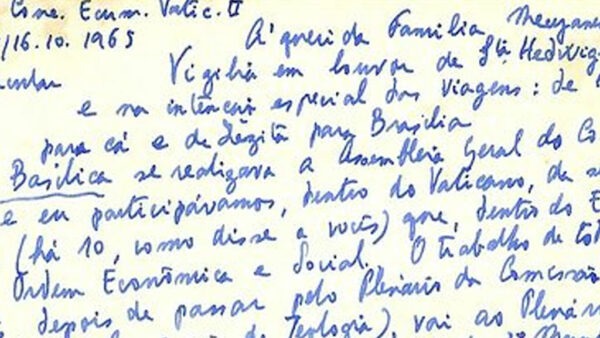 Conc. Ecum. Vatic. II
/16.10.1965 À querida Família
Vigília em louvor de Sta Hedwig
e na intenção especial das viagens: de
para cá e de Lêzitã para Brasília
Basílica se realizava a Assembleia Geral do Co
e eu participávamos, dentro do Vaticano, da s
(há 10, como disse a vocês) que, dentro do E
Ordem Econômica e Social. O trabalho de to
depois de passar pelo Plenário da Comissão
Teologia), vai ao Plenár